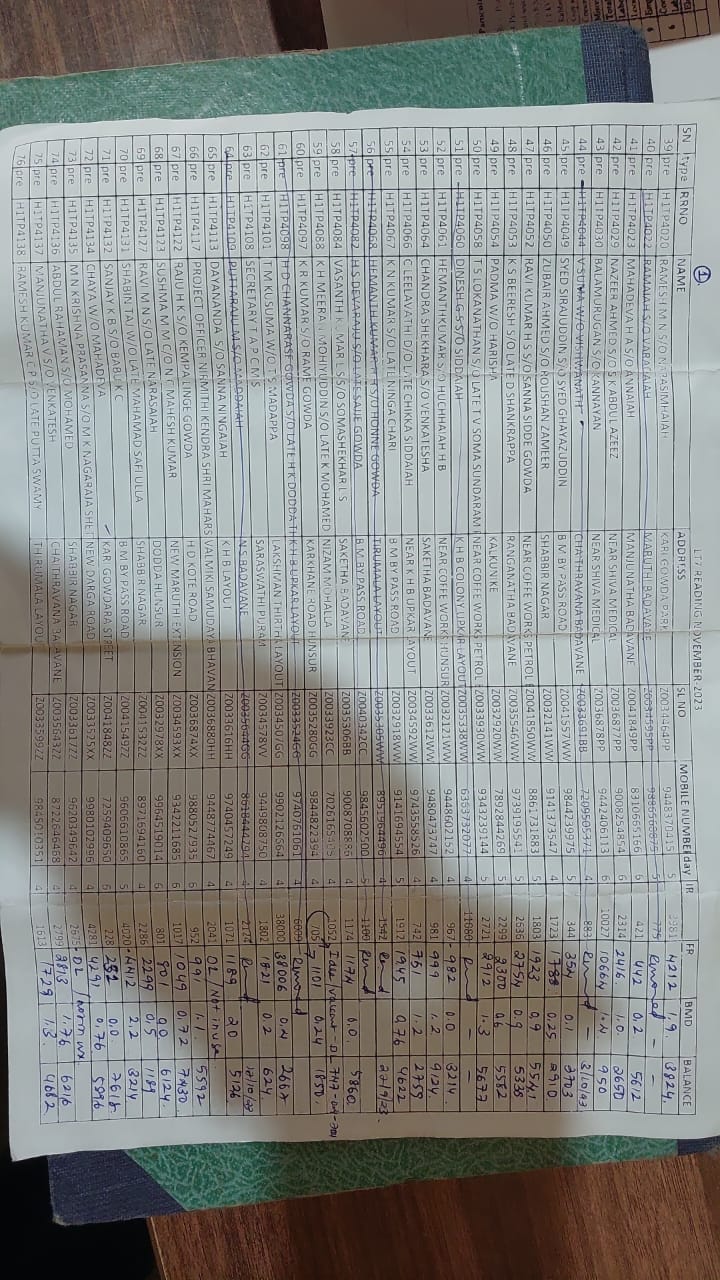 1
LT7 READING NOVEMBER-2023
SN type RRNO NAME ADDRESS SL NO MOBILE NUMBER day IR FR BMD BALANCE
39 pre H1TP4020 RAMESH M N S/O NARASIMHAIAH KARI GOWDA PARK Z0034464PP 9448370415 5 4212 1.9 3824
40 pre H1TP4022 RAMAIAH S/O VARADAIAH MARUTHI BADAVANE Z0034595PP 5 775 Removed - -
41 pre H1TP4023 MAHADEVAH A S/O ANNAIAH MANJUNATHA BADAVANE Z0041849PP 8310665166 6 421 442 0.2 5612
42 pre H1TP4029 NAZEER AHMED S/O S K ABDUL AZEEZ NEAR SHIVA MEDICAL Z0036877PP 9008254854 6 2314 2416 1.0 2650
43 pre H1TP4030 BALAMURUGAN S/O KANNAYAN NEAR SHIVA MEDICAL Z0036878PP 9442406113 6 10027 950
44 pre H1TP4044 V SUMA W/O VISHWANATH CHATHRAVANA BADAVANE Z0033691BB 7259505771 4 883 Rmd -
45 pre H1TP4049 SYED SIRAJUDDIN S/O SYED GHAYAZUDDIN B M BY PASS ROAD Z0041557WW 9844239975 5 344 354 0.1 2703
46 pre H1TP4050 ZUBAIR AHMED S/O ROUSHAN ZAMEER SHABBIR NAGAR Z0032141WW 9141373547 4 1723 1788 0.25 2910
47 pre H1TP4052 RAVI KUMAR H S S/O SANNA SIDDE GOWDA NEAR COFFE WORKS PETROL Z0041850WW 8861731883 5 1803 1923 0.9
48 pre H1TP4053 K S BEERESH S/O LATE D SHANKRAPPA RANGANATHA BADAVANE Z0035546WW 9739195541 5 2636 2754 0.9 5335
49 pre H1TP4054 PADMA W/O HARISHA KALKUNIKE Z0032920WW 7892844269 5 2299 2300 0.6 5582
50 pre H1TP4058 T S LOKANATHAN S/O LATE T V SOMA SUNDARAM NEAR COFFE WORKS PETROL Z0033930WW 9343239144 5 2721 2912 1.3 5677
51 pre H1TP4060 DINESH G P S/O SIDDAIAH K H B COLONY UPKAR LAYOUT Z0035338WW 6363732077 4 11080 Rmd - -
52 pre H1TP4061 HEMANTH KUMAR S/O HUCHHAIAH H B NEAR COFFE WORKS HUNSUR Z0032121WW 9448602152 4 967 982 0.0 3214
53 pre H1TP4064 CHANDRA SHEKHARA S/O VENKATESHA SAKETHA BADAVANE Z0033612WW 9480473747 4 981 999 1.2 9124
54 pre H1TP4066 C LEELAVATHI D/O LATE CHIKKA SIDDAIAH NEAR K H B UPKAR LAYOUT Z0034592WW 9743558526 4 742 761 1.2 2759
55 pre H1TP4067 K N KUMAR S/O LATE NINGA CHARI B M BY PASS ROAD Z0032918WW 9141694554 5 1912 1945 0.76 4622
56 pre H1TP4068 HEMANTH KUMAR H R S/O HONNE GOWDA TIRUMALA LAYOUT Z0035305WW 8951964496 4 1542 Rmd 22/9/23
57 pre H1TP4082 H S DEVARAJU S/O LATE SAJE GOWDA B M BY PASS ROAD Z0040342CC 9845602500 5 1100 Rmd
58 pre H1TP4084 VASANTH KUMAR L S S/O SOMASHEKHAR L S SAKETHA BADAVANE Z0035306BB 9008708886 4 1174 1174 0.0 5860
59 pre H1TP4088 K H MEERAN MOHIYUDDIN S/O LATE K MOHAMED NIZAM MOHALLA Z0033923CC 4 Idle / vacant - DL
60 pre H1TP4097 K R KUMAR S/O RAME GOWDA KARKHANE ROAD HUNSUR Z0035280GG 9844822394 4 705 1101 0.24 1850
61 pre H1TP4098 H D CHANNARASE GOWDA S/O LATE H K DODDATH K H B UPKAR LAYOUT Z0033524GG 9740761061 4 6009 Removed
62 pre H1TP4101 T M KUSUMA W/O T S MADAPPA LAKSHMAN THIRTHA LAYOUT Z0034507GG 9902126564 4 38000 38006 2667
63 pre H1TP4108 SECRETARY T A P C M S SARASWATHI PURAM Z0034578VV 9449808750 4 1802 1821 0.2 624
64 pre H1TP4109 PUTTARAJU M S/O MADDAIAH N S BADAVANE Z0035644GG 8618442794 4 2174 Rmd 17/10/23
65 pre H1TP4113 DAYANANDA S/O SANNA NINGAIAH K H B LAYOUT Z0033616HH 9740457249 4 1071 1189 20 5126
66 pre H1TP4117 PROJECT OFFICER NIRMITHI KENDRA SHRI MAHARS VALMIKI SAMUDAYA BHAVAN Z0036880HH 9448774467 4 2041 DL / Not in use
67 pre H1TP4122 RAJU H K S/O KEMPALINGE GOWDA H D KOTE ROAD Z0036874XX 9880527935 6 952 991 1.1 5592
68 pre H1TP4123 SUSHMA M M C/O N C MAHESH KUMAR NEW MARUTHI EXTENSION Z0034593XX 9342211685 6 1017 1049 0.72 7430
69 pre H1TP4127 RAVI M N S/O LATE NARASAIAH DODDA HUNSUR Z0032978XX 9964519014 6 801 801 00 6124
70 pre H1TP4131 SHABIN TAJ W/O LATE MAHAMAD SAFIULLA SHABBIR NAGAR Z0041532ZZ 8971694160 4 2286 2299 0.5 1189
71 pre H1TP4132 SANJAY K B S/O BABU K C B M BY PASS ROAD Z0041549ZZ 9606610865 5 4020 4412 2.2 3214
72 pre H1TP4134 CHAYA W/O MAHADEVA KAR GOWDARA STREET Z0041848ZZ 7259409650 6 228 232 0.0 7618
73 pre H1TP4135 M N KRISHNA PRASANNA S/O M K NAGARAJA SHET NEW DARGA ROAD Z0033575XX 9980102996 4 4281 4291 0.76 5996
74 pre H1TP4136 ABDUL RAHAMAN S/O MOHAMED SHABBIR NAGAR Z0033617ZZ 9620349642 4 2675 DL
75 pre H1TP4137 MANJUNATHA V S/O VENKATESH CHATHRAVANA BADAVANE Z0035643ZZ 8722646458 4 2799 2813 1.76 6216
76 pre H1TP4138 RAMESH KUMAR C P S/O LATE PUTTA SWAMY THIRUMALA LAYOU Z0033599ZZ 9845010351 4 1613 1729 1.3 4682